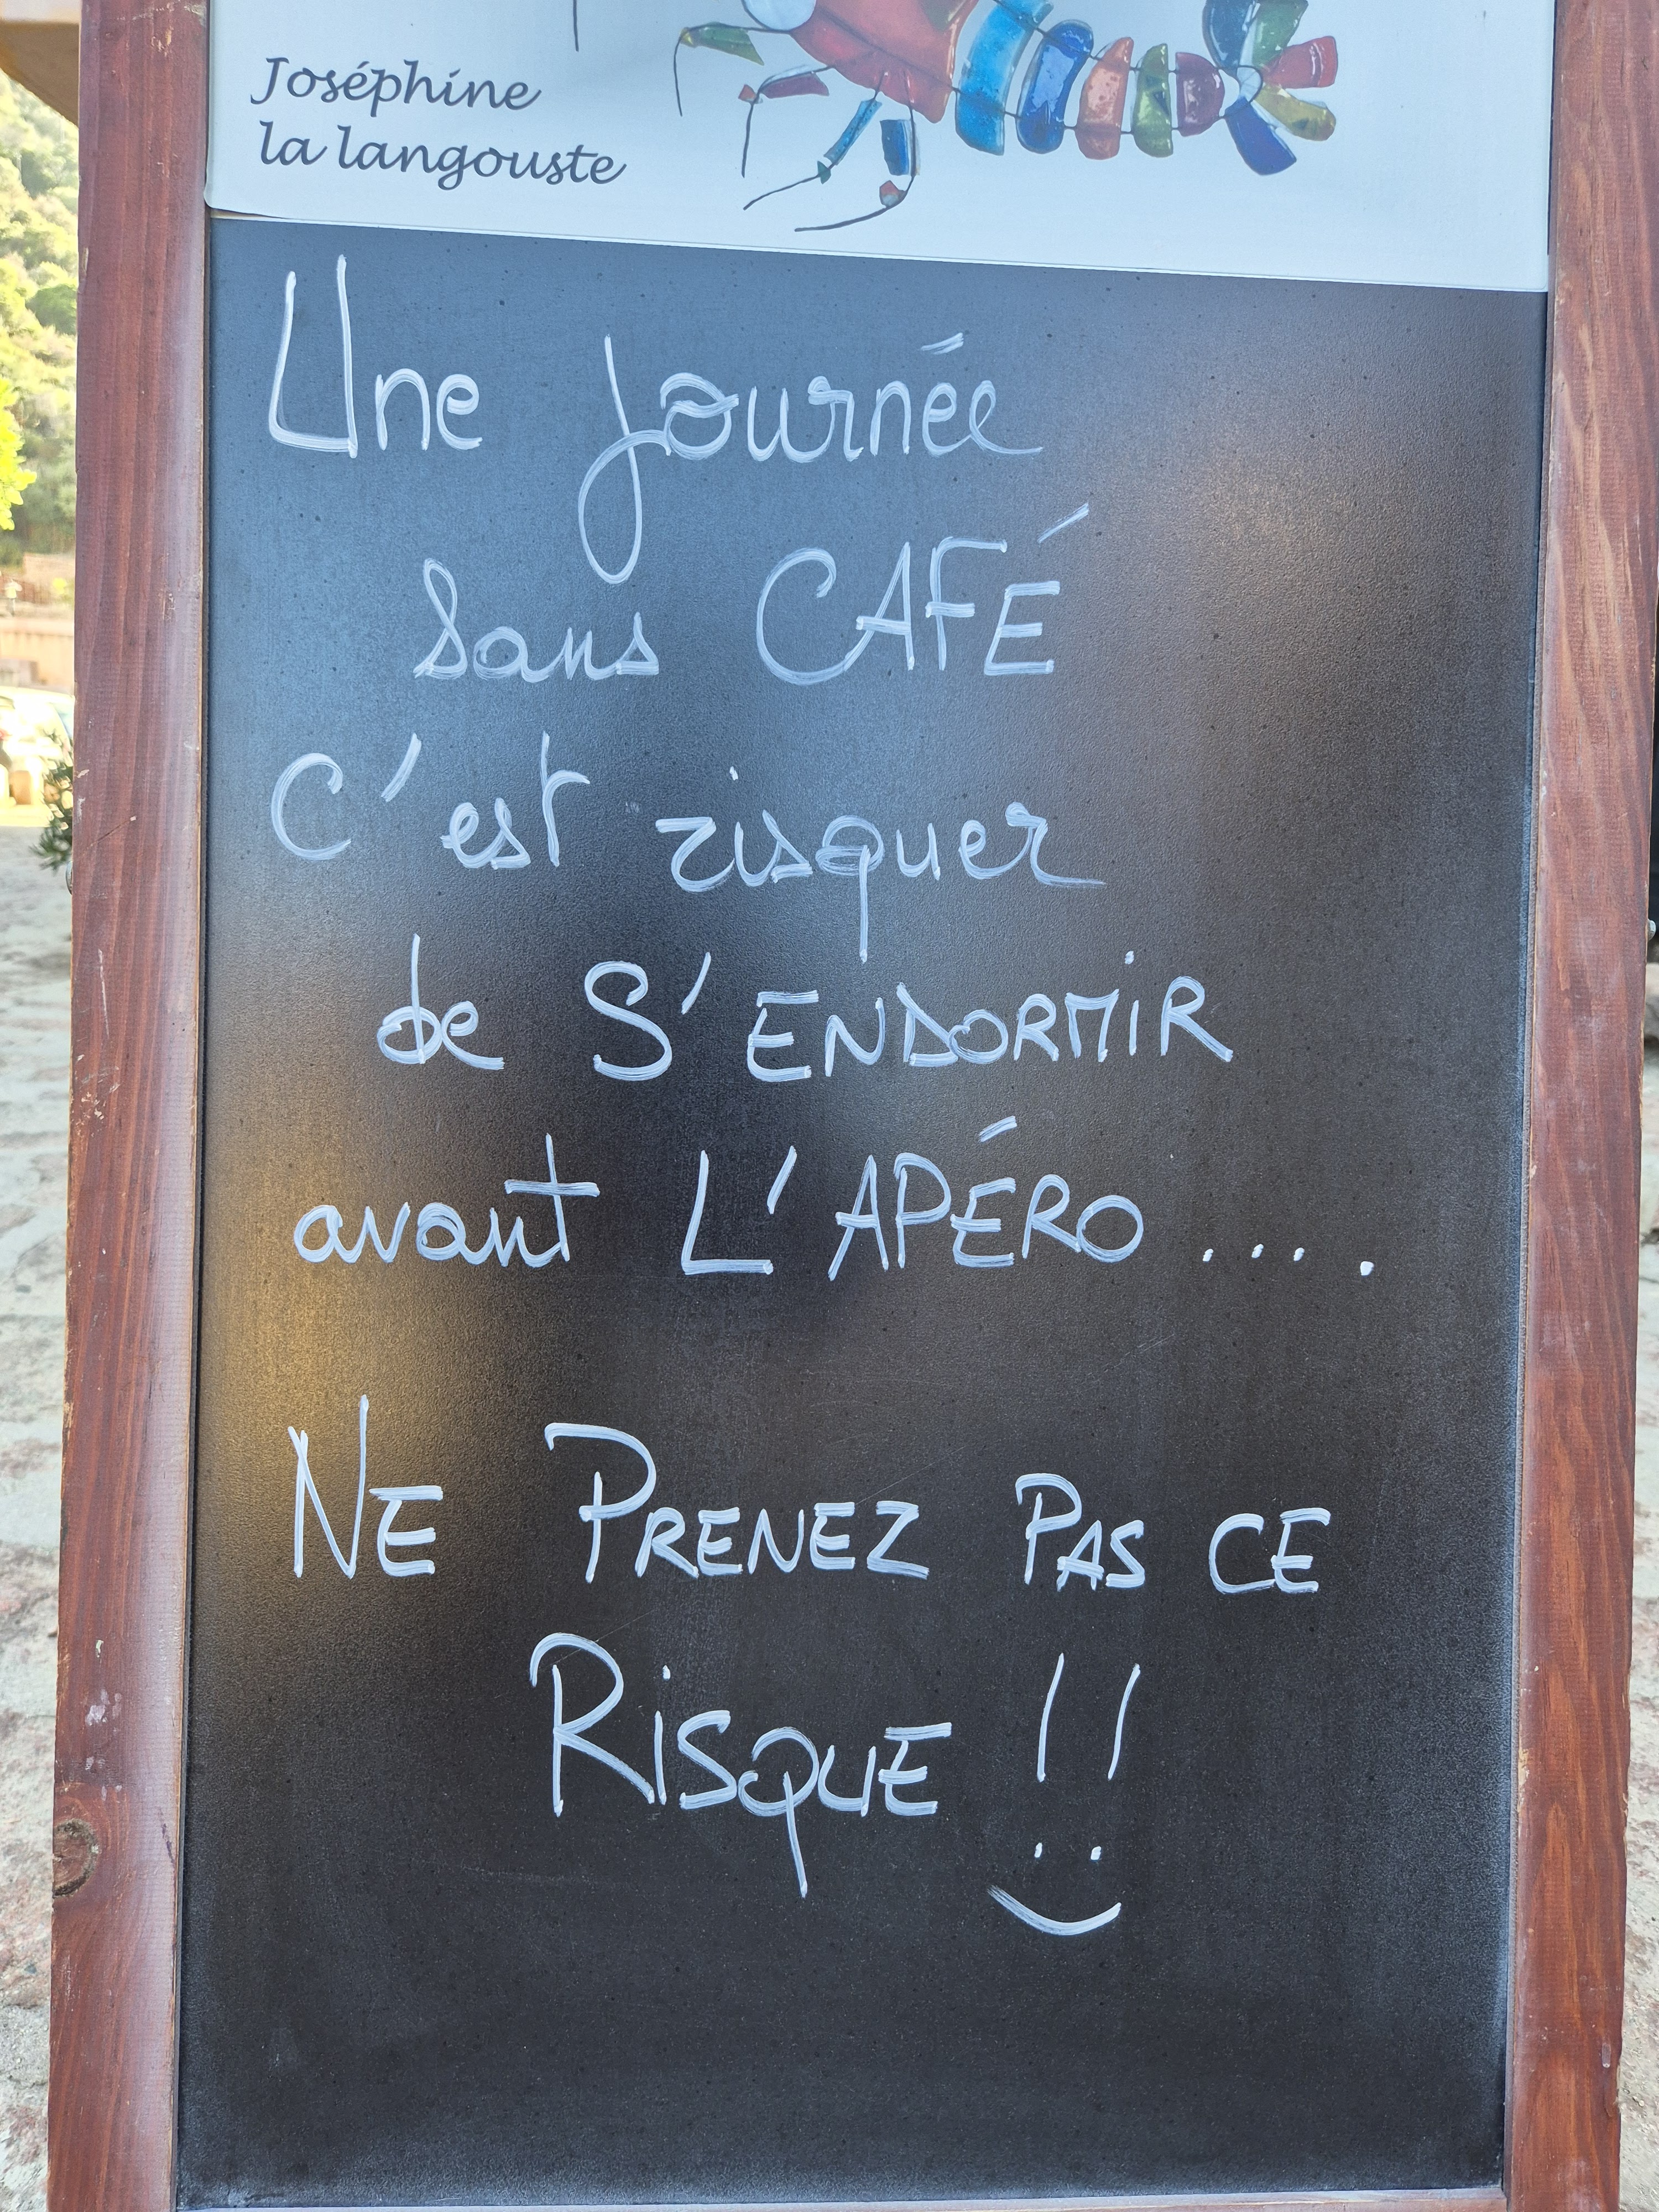 Joséphine
la langouste
Une journée
sans CAFÉ
C'est risquer
de S'ENDORMiR
avant L'APÉRO.....
NE PRENEZ PAS CE
RiSQUE !!